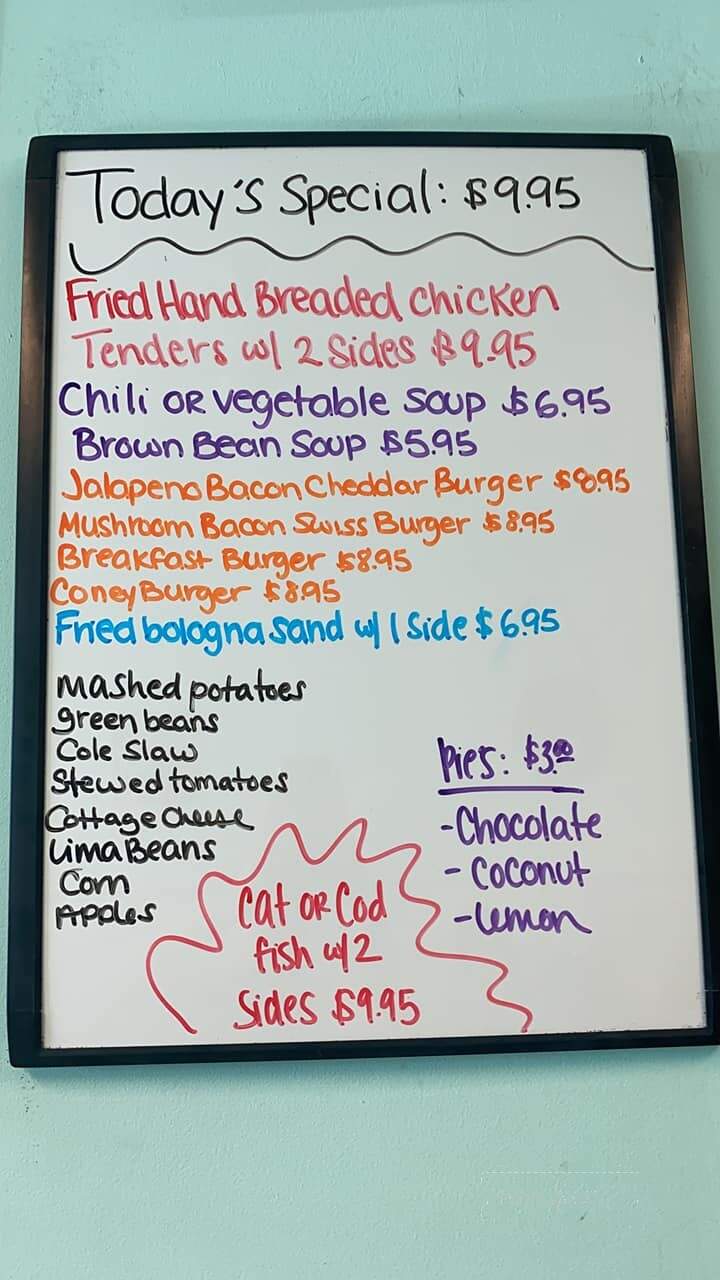 Today's Special: $9.95
Fried Hand Breaded Chicken
Tenders w/ 2 Sides $9.95
Chili OR vegetable Soup $6.95
Brown Bean Soup $5.95
Jalapeno Bacon Cheddar Burger $8.95
Mushroom Bacon Swiss Burger $8.95
Breakfast Burger $8.95
Coney Burger $8.95
Fried bologna Sand w/ 1 Side $6.95
mashed potatoes
green beans
Cole Slaw
Stewed tomatoes
Cottage Cheese
Lima Beans
Corn
Apples
Pies: $3.00
-Chocolate
- Coconut
-Lemon
Cat OR Cod
fish w/2
Sides $9.95